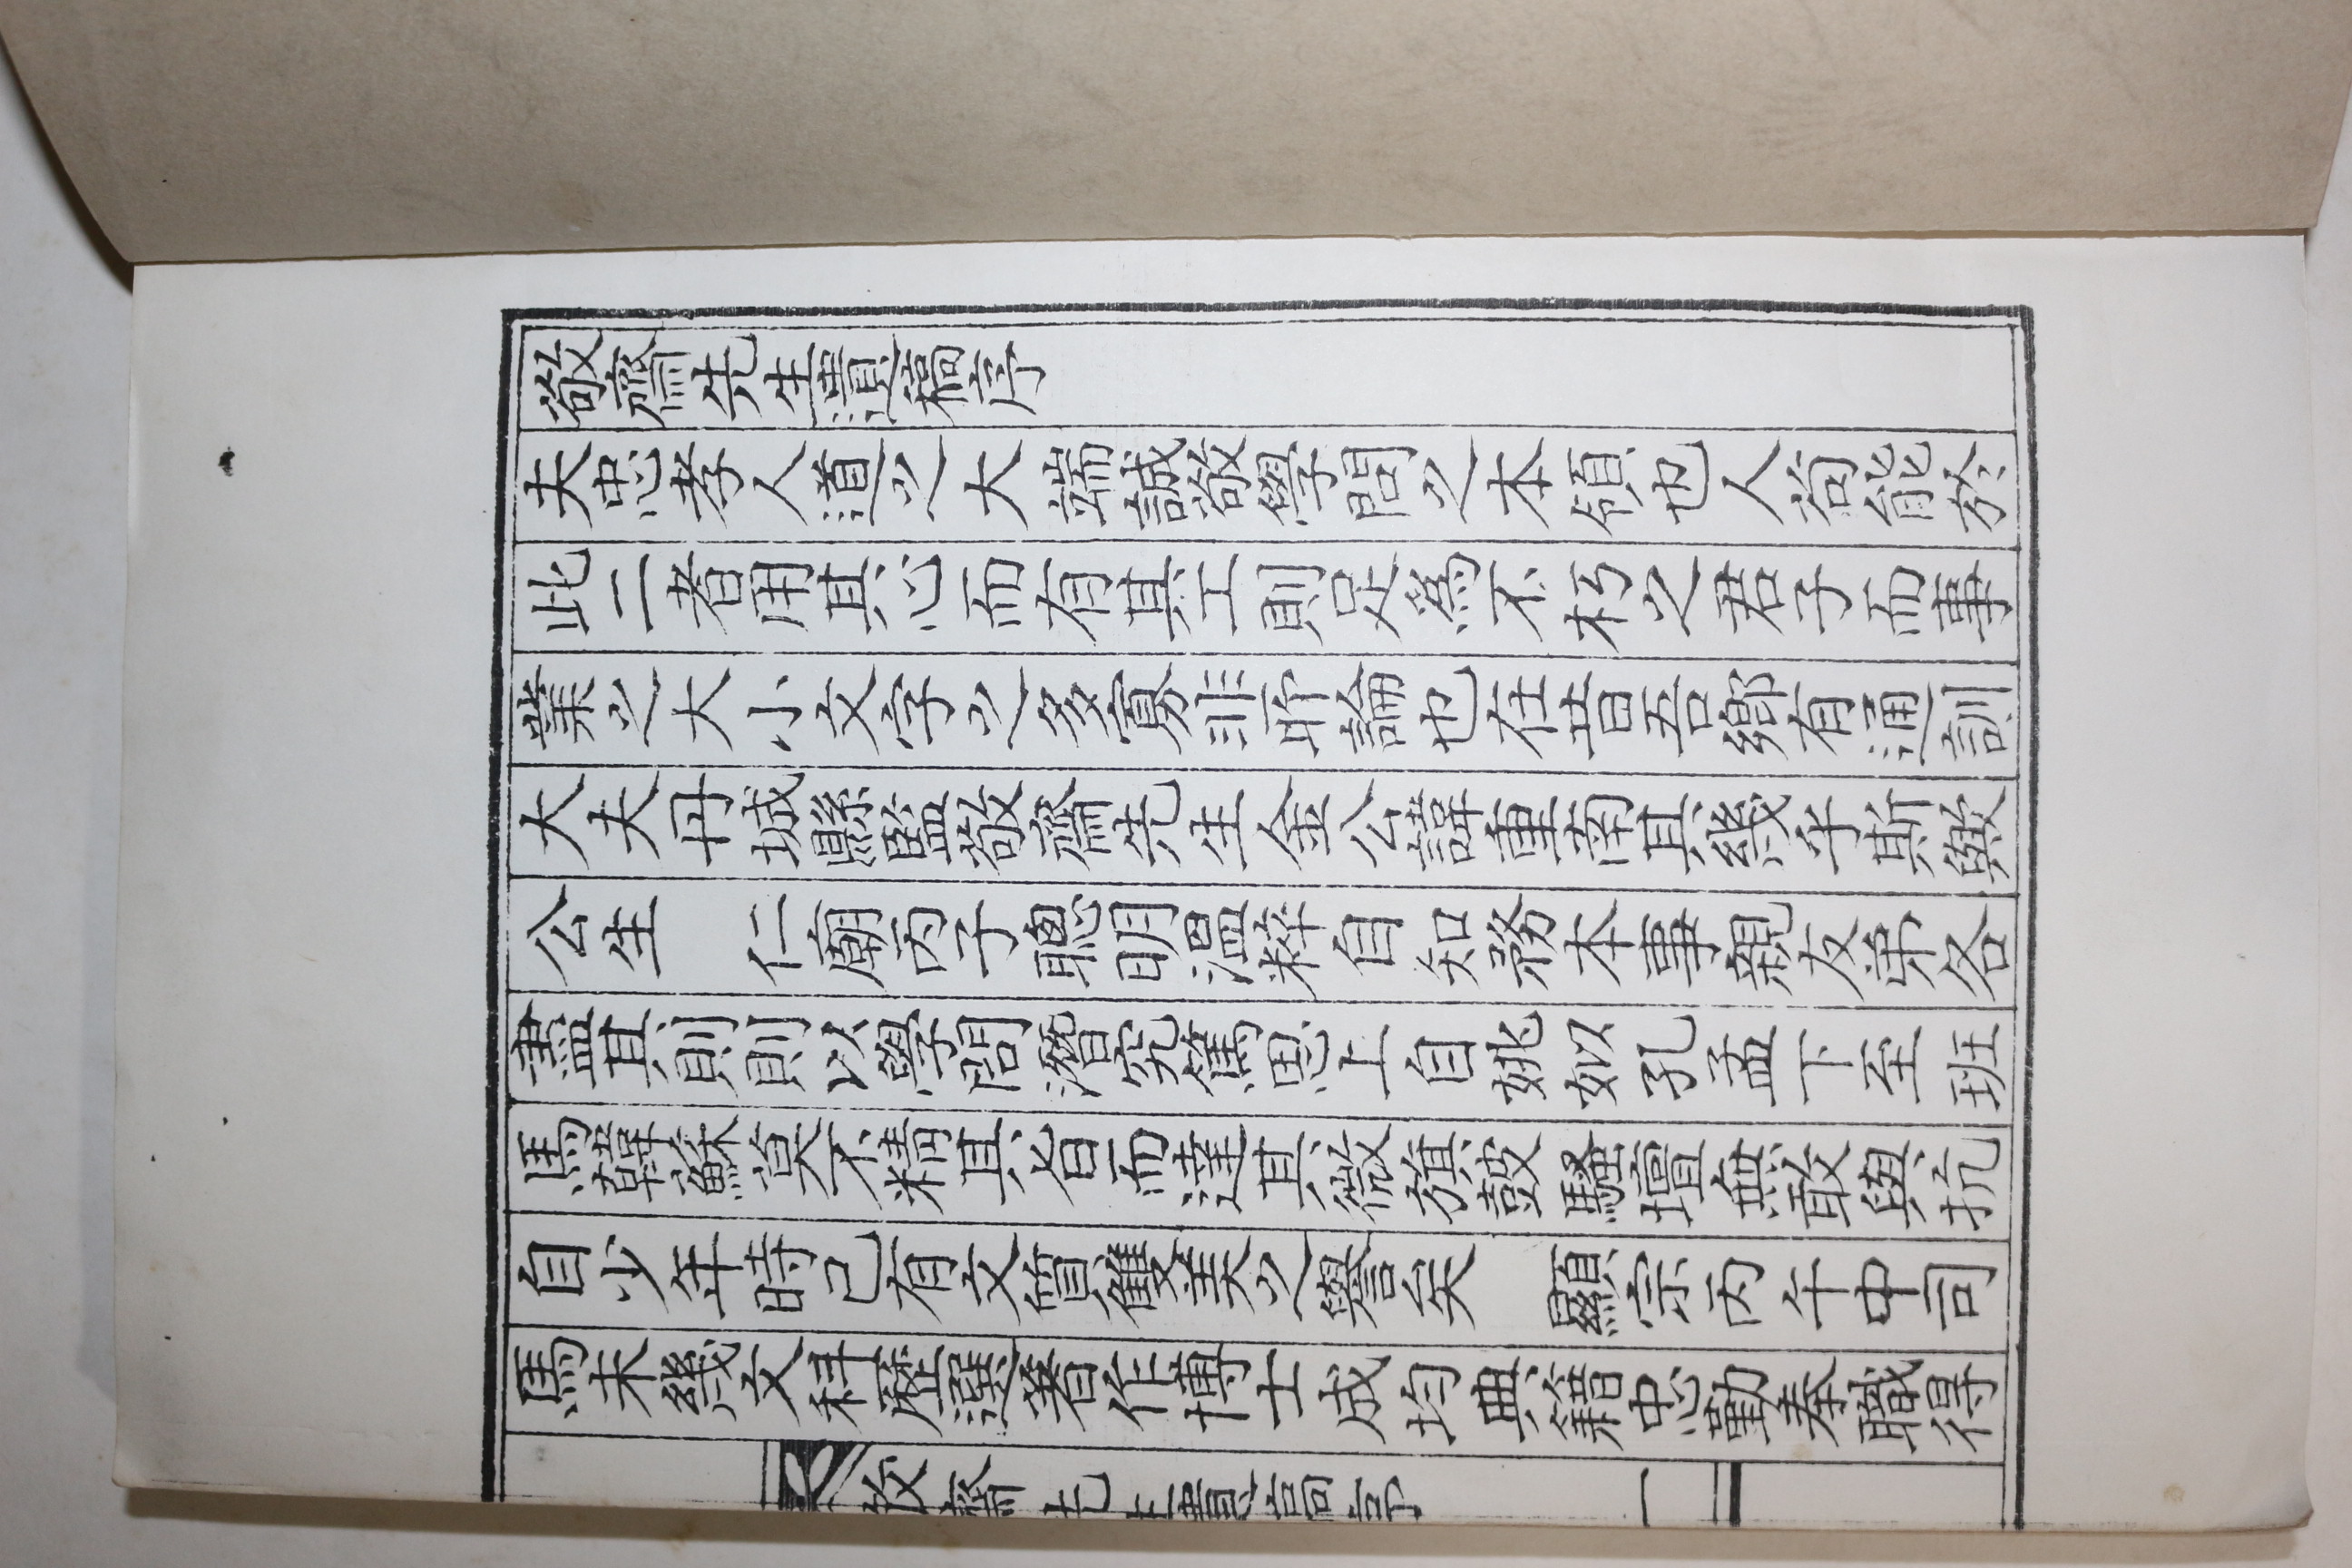 敬齋先生遺稿序
夫忠孝人道之大端誠敬學問之本領也人苟能於
此二者用其心而有其工則足爲不朽之君子而事
業之大小文字之多寡非所論也在昔吾鄉有通訓
大夫丹城縣監敬齋先生金公諱重南其幾乎斯歟
公生　仁廟丙子聰明溫粹自知務本事親友弟各
盡其則則以學問潛究篤思上自姚姒孔孟下至班
馬韓蘇莫不精其旨而達其微旗鼓騷壇無敢與抗
自少年時已有文質雙美之譽矣　顯宗丙午中司
馬未幾文科歷選著作博士成均典籍忠勤奉職得
敬齋先生遺稿序　一